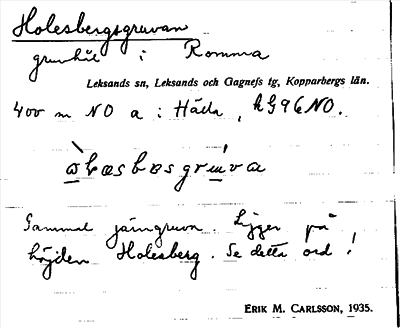 Holesbergsgruvan
gruvhål i Romma
Leksands sn, Leksands och Gagnefs tg, Kopparbergs län.
400 m NO a i Häda, k G96NO.
Gammal järngruva. Ligger på
höjden Holesberg. Se detta ord!
ERIK M. CARLSSON, 1935.